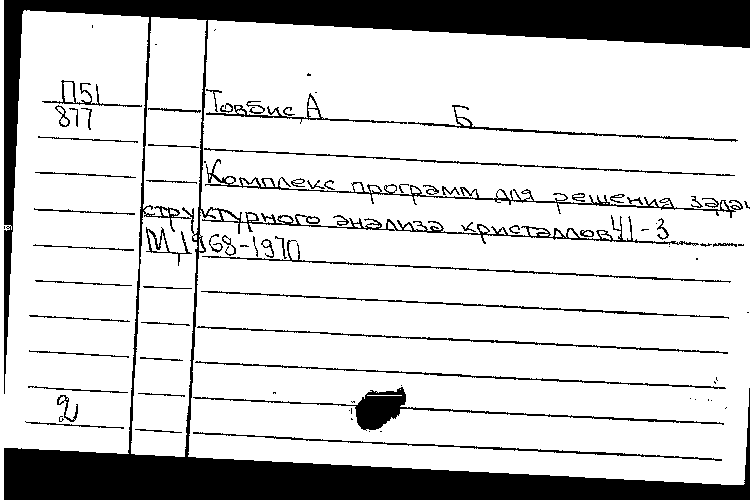 П51
877
Товбис, А Б
Комплекс программ для решения задач
структурного анализа кристаллов Ч1-3
М, 1968-1970
2